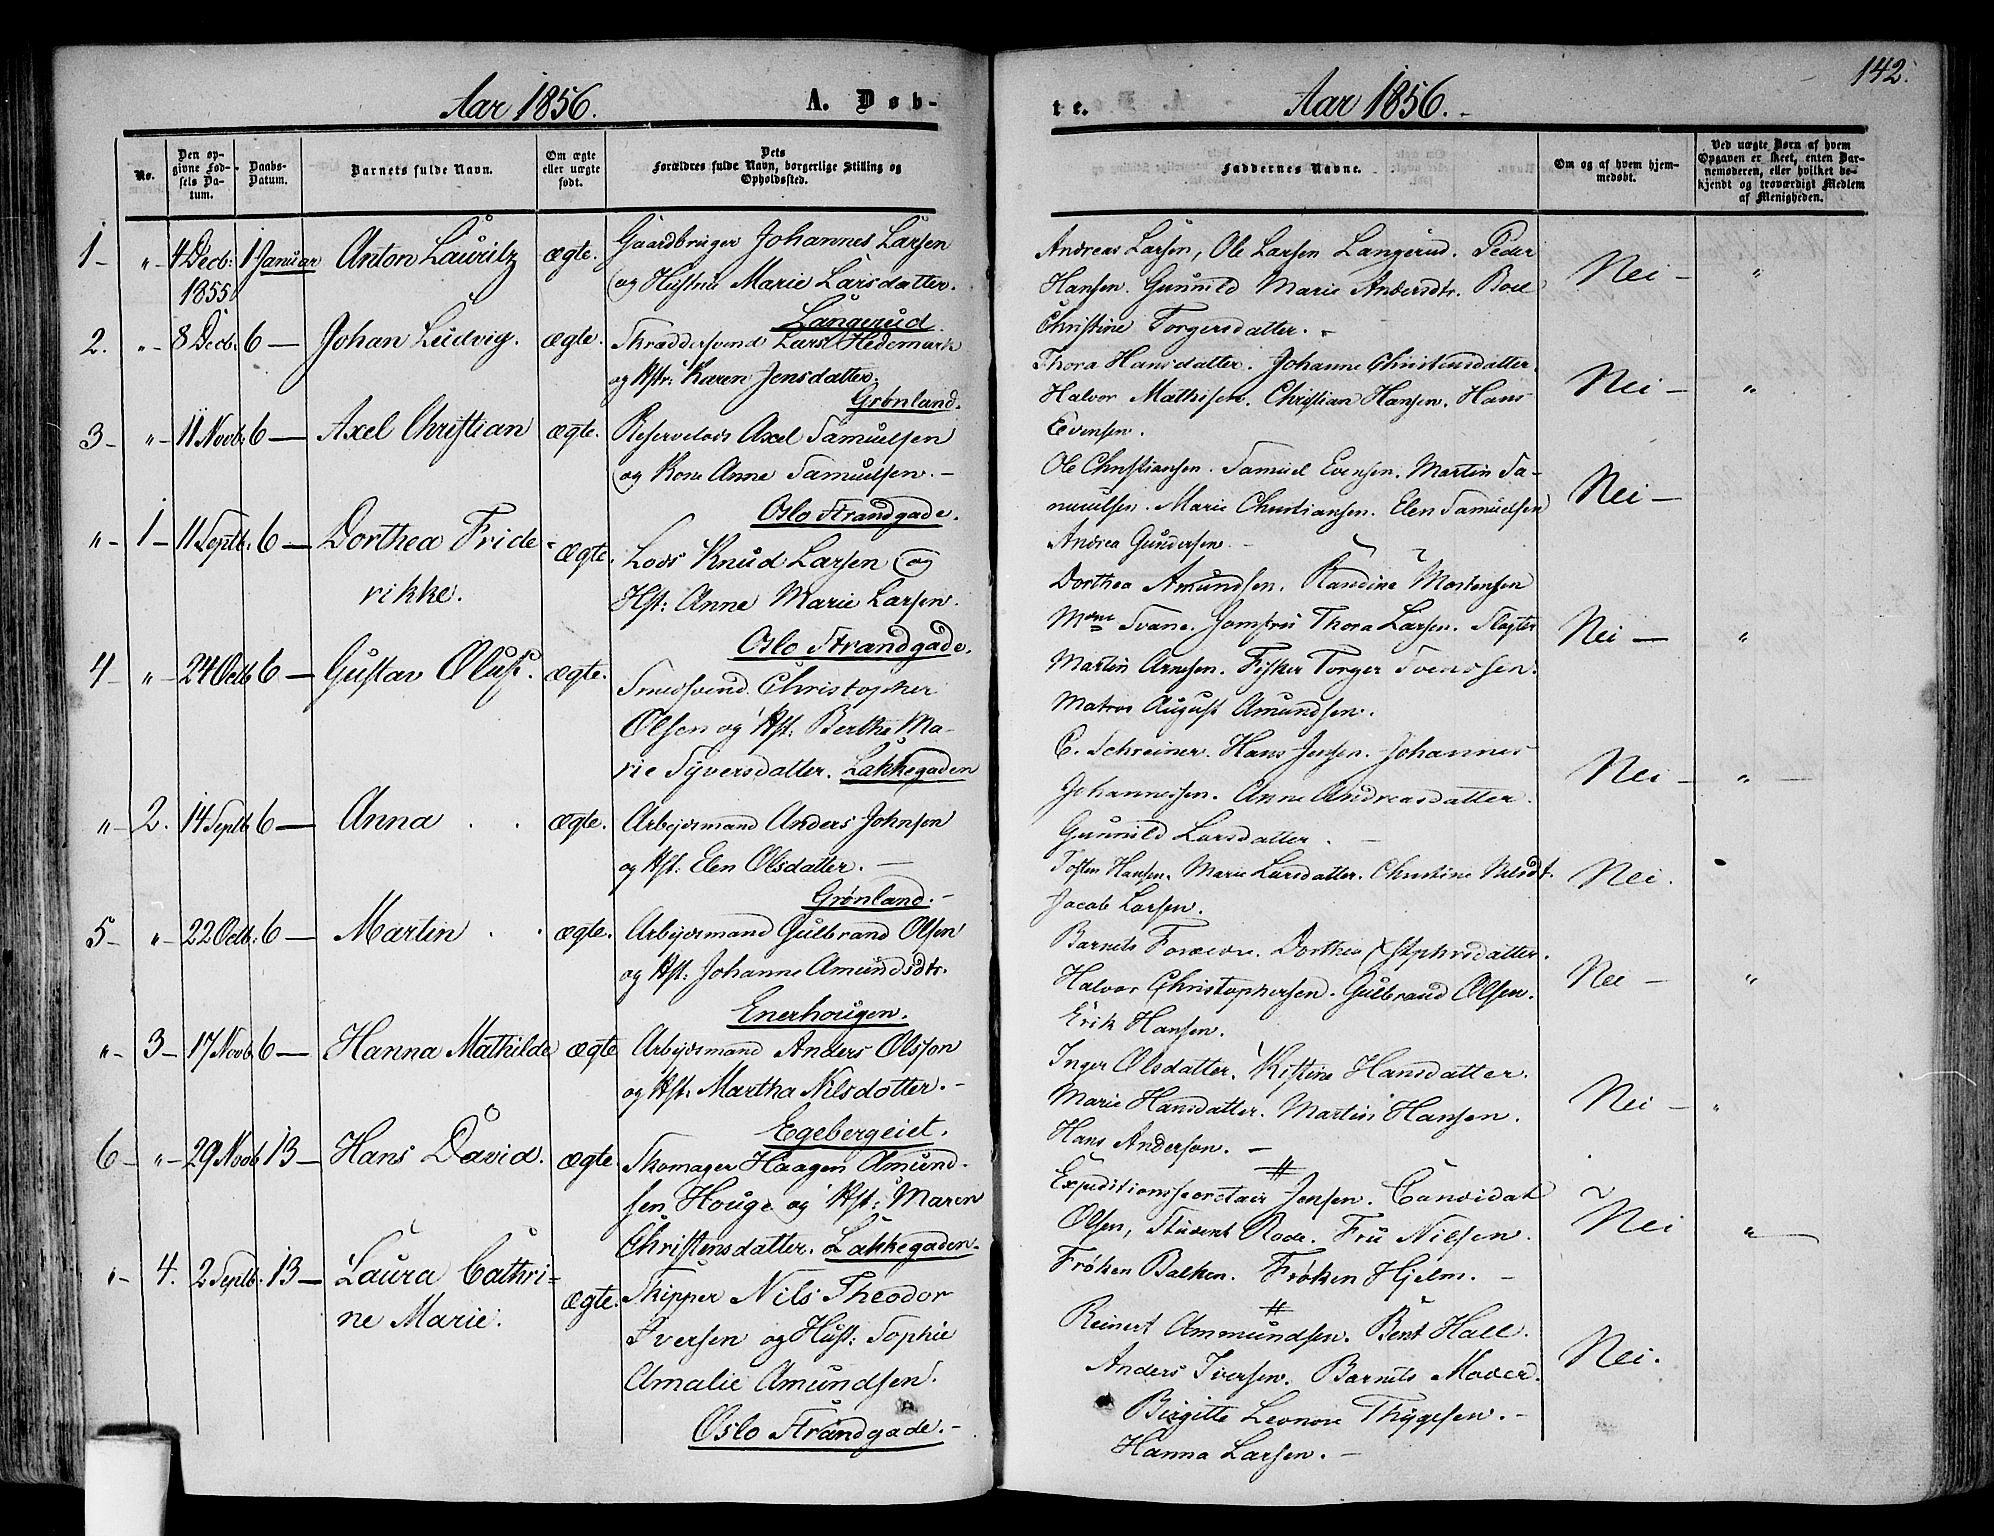 142.
Aar 1856. A. Døb-
te. Aar 1856.
No.
Den op-
givne Fød-
sels Da-
tum.
Daabs-
Datum.
Barnets fulde Navn.
Om ægte
eller uægte
født.
Dets
Forældres fulde Navn, borgerlige Stilling og
Opholdssted.
Faddernes Navne.
Om og af hvem hjem-
medøbt.
Ved uægte Børn af hvem
Opgaven er skeet, enten Bar-
nemoderen, eller hvilket be-
kjendt og troværdigt Medlem
af Menigheden.
1 - " 4 Decb: 1855 1 Januar Anton Lauritz ægte.
Gaardbruger Johannes Larsen
og Hustru Marie Larsdatter.
Langerud.
Andreas Larsen, Ole Larsen Langerud. Peder
Hansen. Gunnild Marie Andersdtr. Boel
Christine Torgersdatter. -
Nei - "
2. " 8 Decb: 6 - Johan Ludvig. ægte.
Skræddersvend Lars Hedemark
og Hstr: Karen Jensdatter,
Grønland.
Thora Hansdatter. Johanne Christensdatter.
Halvor Mathisen. Christian Hansen. Hans
Evensen.
Nei - "
3 - " 11 Novb: 6 - Axel Christian ægte.
Reservelods Axel Samuelsen
og Kone Anne Samuelsen. -
Oslo Strandgade.
Ole Christiansen. Samuel Evensen. Martin Sa-
muelsen. Marie Christiansen. Elen Samuelsen
Andrea Gundersen. -
Nei -
" - 1 - 11 Septb: 6 - Dorthea Fride-
rikke. ægte.
Lods Knud Larsen og
Hst: Anne Marie Larsen.
Oslo Strandgade.
Dorthea Amundsen. Randine Mortensen
Mdme Svane. Jomfru Thora Larsen. Slagter
Martin Arnesen. Fisker Torger Svendsen.
Matros August Amundsen.
Nei - "
4 - " 24 Octb 6 - Gustav Oluf. ægte.
Smedsvend Christopher
Olsen og Hst: Berthe Ma-
rie Syversdatter. Lakkegaden
C. Schreiner. Hans Jensen. Johannes
Johannessen. Anne Andreasdatter.
Gunnild Larsdatter. -
Nei - "
" - 2. 14 Septb 6 - Anna ægte.
Arbejdsmand Anders Johnsen
og Hst: Elen Olsdatter. -
Grønland. -
Tosten Hansen. Marie Larsdatter. Christine Nilsdt.
Jacob Larsen.
Nei.
5 - " 22 Octb: 6 - Martin ægte.
Arbejdsmand Gulbrand Olsen
og Hst: Johanne Amundsdtr.
Enerhougen.
Barnets Forældre. Dorthea Christphersdatter.
Halvor Christophersen. Gulbrand Olsen.
Erik Hansen.
Nei - "
" - 3 - 17 Novb 6 - Hanna Mathilde ægte
Arbejdsmand Anders Olsson
og Hst: Martha Nilsdotter. -
Egebergeiet.
Inger Olsdatter. Kistine Hansdatter.
Marie Hansdatter. Martin Hansen.
Hans Anderson. -
Nei - "
6 - " 29 Novb 13 - Hans David. ægte
Skomager Haagen Amund-
sen Houge og Hst: Maren
Christensdatter. Lakkegaden.
Expeditionssecretair Jensen. Candidat
Olsen, Student Rode. Fru Nilsen.
Frøken Balken. Frøken Hjelm. -
Nei "
" - 4. 2 Septb: 13 - Laura Cathri-
ne Marie. ægte.
Skipper Nils Theodor
Iversen og Hust: Sophie
Amalie Amundsen.
Oslo Strandgade. -
Reinert Ammundsen. Bent Hall.
Anders Iversen. Barnets Moder.
Birgitte Leonore Thygesen. -
Hanna Larsen. -
Nei.